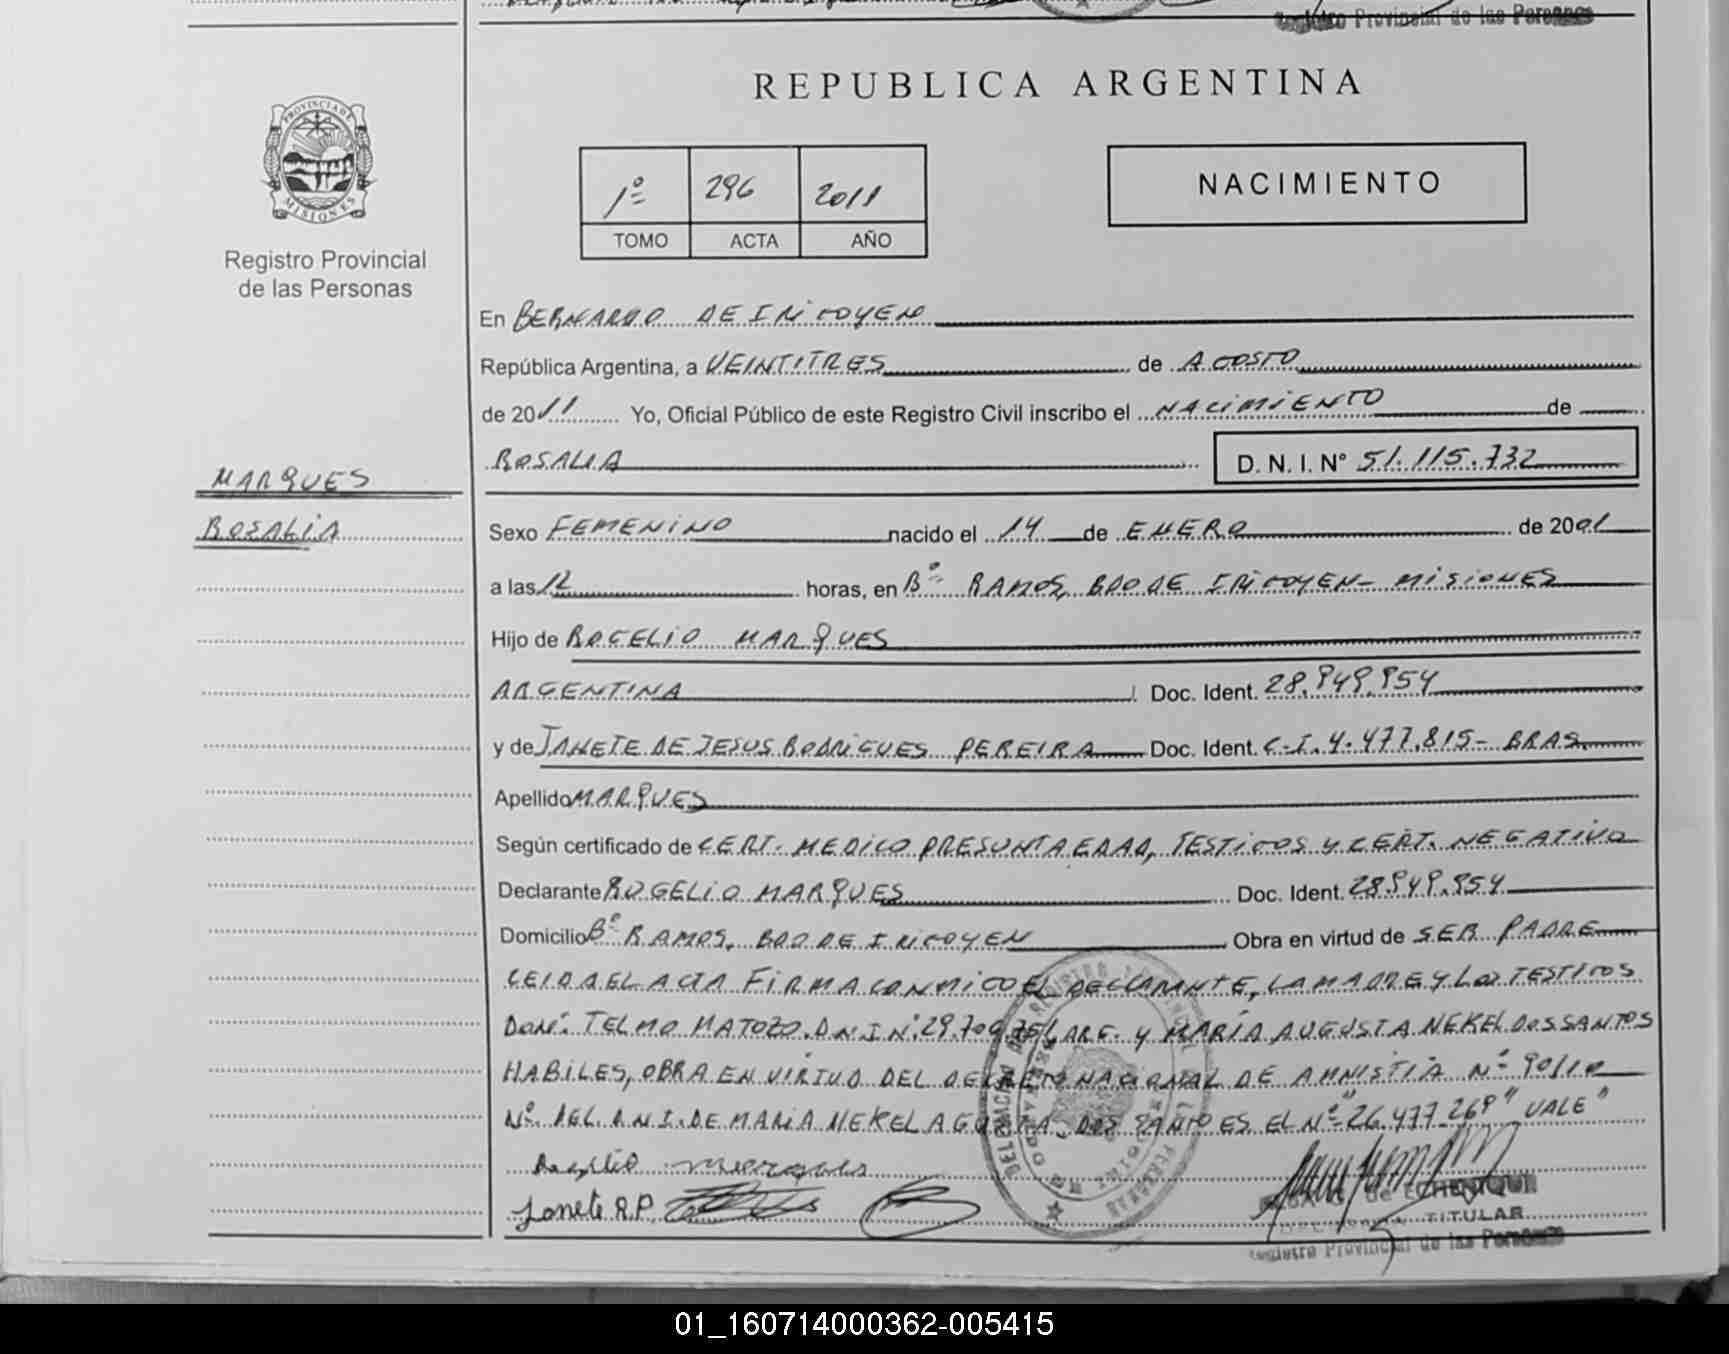 Registro Provincial de las Personas
PROVINCIA DE
MISIONES
Registro Provincial
de las Personas
REPUBLICA ARGENTINA
1º 296 2011
TOMO ACTA AÑO
NACIMIENTO
En BERNARDO DE IRIGOYEN
República Argentina, a VEINTITRES de AGOSTO
de 2011 Yo, Oficial Público de este Registro Civil inscribo el NACIMIENTO de
ROSALIA D. N. I. Nº 51.115.732
MARQUES
ROSALIA
Sexo FEMENINO nacido el 14 de ENERO de 2001
a las 12 horas, en Bº RAMOS, BDO DE IRIGOYEN - MISIONES
Hijo de ROGELIO MARQUES
ARGENTINA Doc. Ident. 28.949.954
y de JANETE DE JESUS RODRIGUES PEREIRA Doc. Ident. C.I. 4.477.815 - BRAS
Apellido MARQUES
Según certificado de CERT. MEDICO PRESUNTA EDAD, TESTIGOS Y CERT. NEGATIVO
Declarante ROGELIO MARQUES Doc. Ident. 28.949.954
Domicilio Bº RAMOS, BDO DE IRIGOYEN Obra en virtud de SER PADRE
LEIDA EL ACTA FIRMA CONMIGO EL DECLARANTE, LA MADRE Y LOS TESTIGOS
DON: TELMO MATOZO. D.N.I Nº: 29.709 ARG. Y MARÍA AUGUSTA NEKEL DOS SANTOS
HABILES, OBRA EN VIRTUD DEL DECRETO NACIONAL DE AMNISTIA Nº 90/10
Nº DEL D.N.I. DE MARIA NEKEL AGUSTA DOS SANTOS ES EL Nº "26.477.269" "VALE"
Rogelio Marques
Janete R.P.
de ECHENIQUE
TITULAR
Registro Provincial de las Personas
01_160714000362-005415